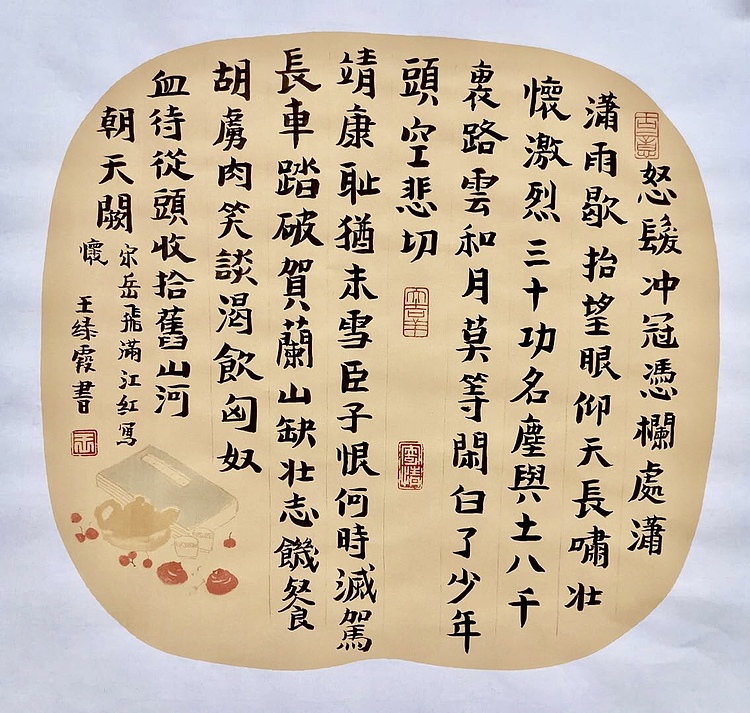 古意
怒髮冲冠憑欄處瀟
瀟雨歇抬望眼仰天長嘯壯
懷激烈三十功名塵與土八千
裏路雲和月莫等閑白了少年
頭空悲切
大吉羊
靖康耻猶未雪臣子恨何時滅駕
長車踏破賀蘭山缺壯志饑餐
胡虜肉笑談渴飲匈奴
血待從頭收拾舊山河
朝天闕
宋岳飛滿江红寫
懷
王绿霞書